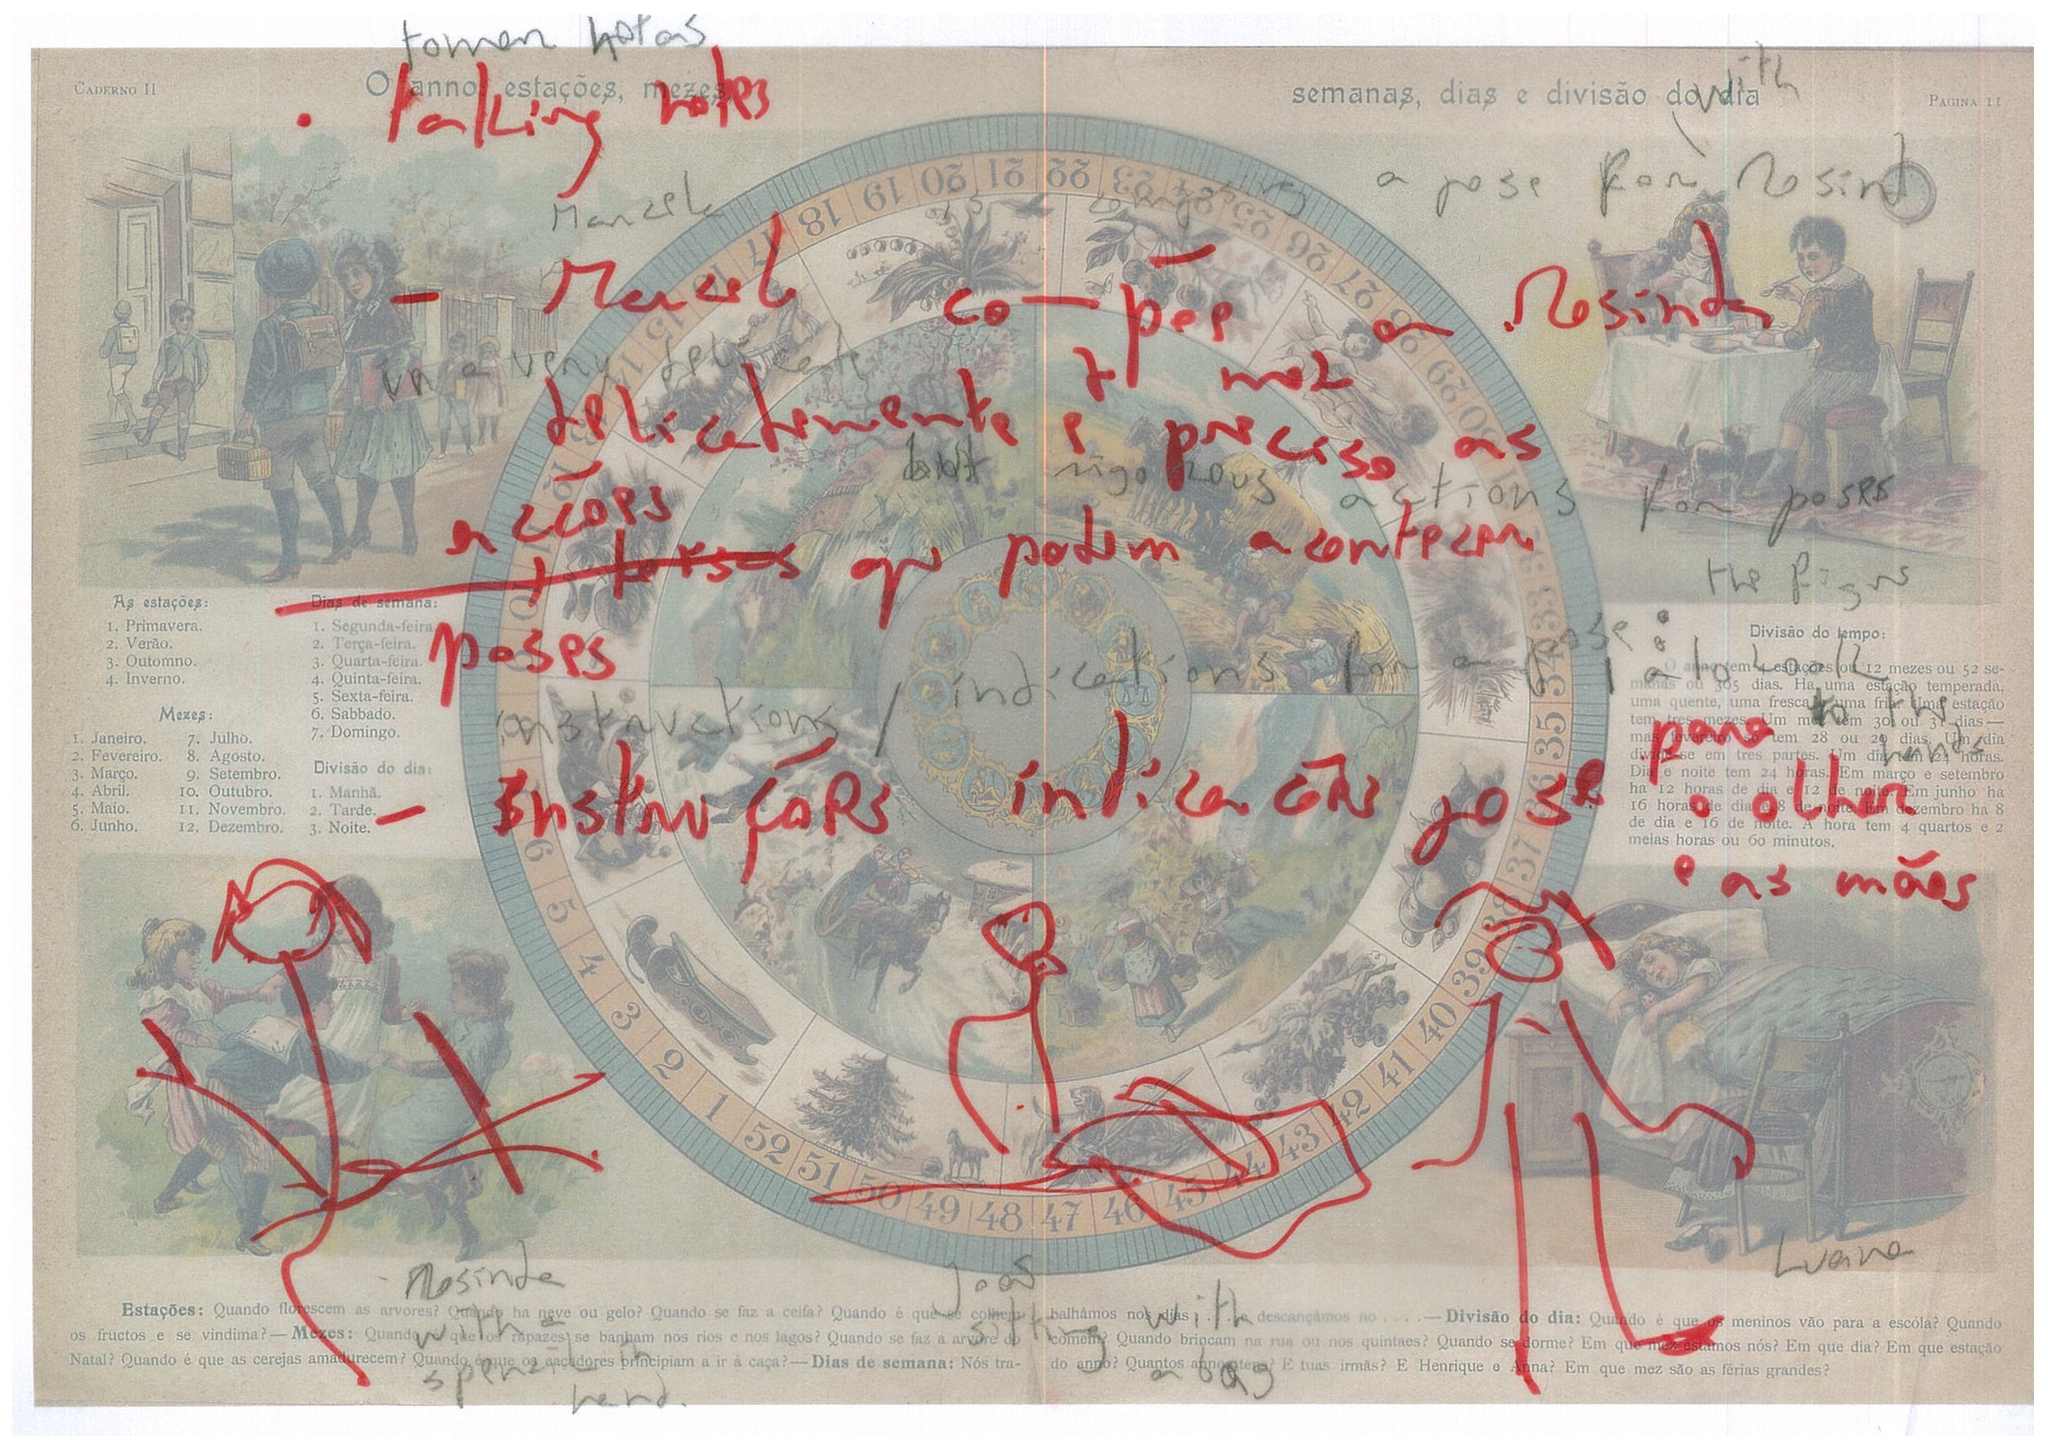 tomar notas
CADERNO II
O anno, estações, mezes,
semanas, dias e divisão do dia
PAGINA 11
with
• taking notes
a pose for Rosinda
Marcela is composing
- Marcela compõe a Rosinda
in a very delicate
delicatemente e preciso as
rigorous actions for poses
acções
que podem acontecer
the figure
poses
instructions / indications for a pose:
to look
to the
hands
- Instruções indicações pose para o olhar
e as mães
As estações:
1. Primavera.
2. Verão.
3. Outomno.
4. Inverno.
Dias de semana:
1. Segunda-feira.
2. Terça-feira.
3. Quarta-feira.
4. Quinta-feira.
5. Sexta-feira.
6. Sabbado.
7. Domingo.
Mezes:
1. Janeiro.
2. Fevereiro.
3. Março.
4. Abril.
5. Maio.
6. Junho.
7. Julho.
8. Agosto.
9. Setembro.
10. Outubro.
11. Novembro.
12. Dezembro.
Divisão do dia:
1. Manhã.
2. Tarde.
3. Noite.
Divisão do tempo:
O anno tem 4 estações ou 12 mezes ou 52 se-
manas ou 365 dias. Ha uma estação temperada,
uma quente, uma fresca, uma fria. Uma estação
tem tres mezes. Um mez tem 30 ou 31 dias —
mas fevereiro só tem 28 ou 29 dias. Um dia
divide-se em tres partes. Um dia tem 24 horas.
Dia e noite tem 24 horas. Em março e setembro
ha 12 horas de dia e 12 de noite. Em junho ha
16 horas de dia e 8 de noite. Em dezembro ha 8
de dia e 16 de noite. A hora tem 4 quartos e 2
meias horas ou 60 minutos.
1 2 3 4 5 6
10
12 13 14 15
17 18 19 20 21 22 23 24 25 26 27 28 29 30
33 34 35 36 37 38 39 40 41 42 43 44 45 46 47 48 49 50 51 52
Rosinda
with a
spencil in
hand.
João
sitting with
a bag
Luana
Estações: Quando florescem as arvores? Quando ha neve ou gelo? Quando se faz a ceifa? Quando é que se colhem
os fructos e se vindima? — Mezes: Quando é que os rapazes se banham nos rios e nos lagos? Quando se faz a arvore do
Natal? Quando é que as cerejas amadurecem? Quando é que os caçadores principiam a ir á caça? — Dias de semana: Nós tra-
balhâmos nos dias descançâmos no . . . . — Divisão do dia: Quando é que os meninos vão para a escóla? Quando
comem? Quando brincam na rua ou nos quintaes? Quando se dorme? Em que mez estamos nós? Em que dia? Em que estação
do anno? Quantos annos tens? E tuas irmãs? E Henrique e Anna? Em que mez são as férias grandes?